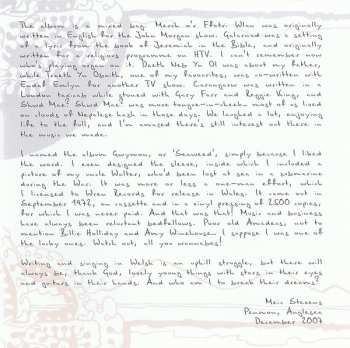 The album is a mixed bag. Merch o'r Ffatri Wlan was originally
written in English for the John Morgan show. Galarnad was a setting
of a lyric from the book of Jeremiah in the Bible, and originally
written for a religious programme on HTV. I can't remember now
who's playing organ on it. Daeth Neb Yn Ol was about my father,
while Traeth Yn Obaith, one of my favourites, was co-written with
Endaf Emlyn for another TV show. Carangarw was written in a
London taxicab while stoned with Gary Farr and Reggie King, and
Shwd Mae? Shwd Mae? was more tongue-in-cheek - most of us lived
on clouds of Nepalese hash in those days. We laughed a lot, enjoying
life to the full, and I'm amazed there's still interest out there in
the music we made.
I named the album Gwymon, or 'Seaweed', simply because I liked
the word. I even designed the sleeve, inside which I included a
picture of my uncle Walter, who'd been lost at sea in a submarine
during the War. It was more or less a one-man effort, which
I licensed to Wren Records for release in Wales. It came out in
September 1972, on cassette and in a vinyl pressing of 2500 copies,
for which I was never paid. And that was that! Music and business
have always been reluctant bedfellows. Poor old Amadeus, not to
mention Billie Holliday and Amy Winehouse. I suppose I was one of
the lucky ones. Watch out, all you wannabes!
Writing and singing in Welsh is an uphill struggle, but there will
always be, thank God, lovely young things with stars in their eyes
and guitars in their hands. And who am I to break their dreams?
Meic Stevens
December 2007